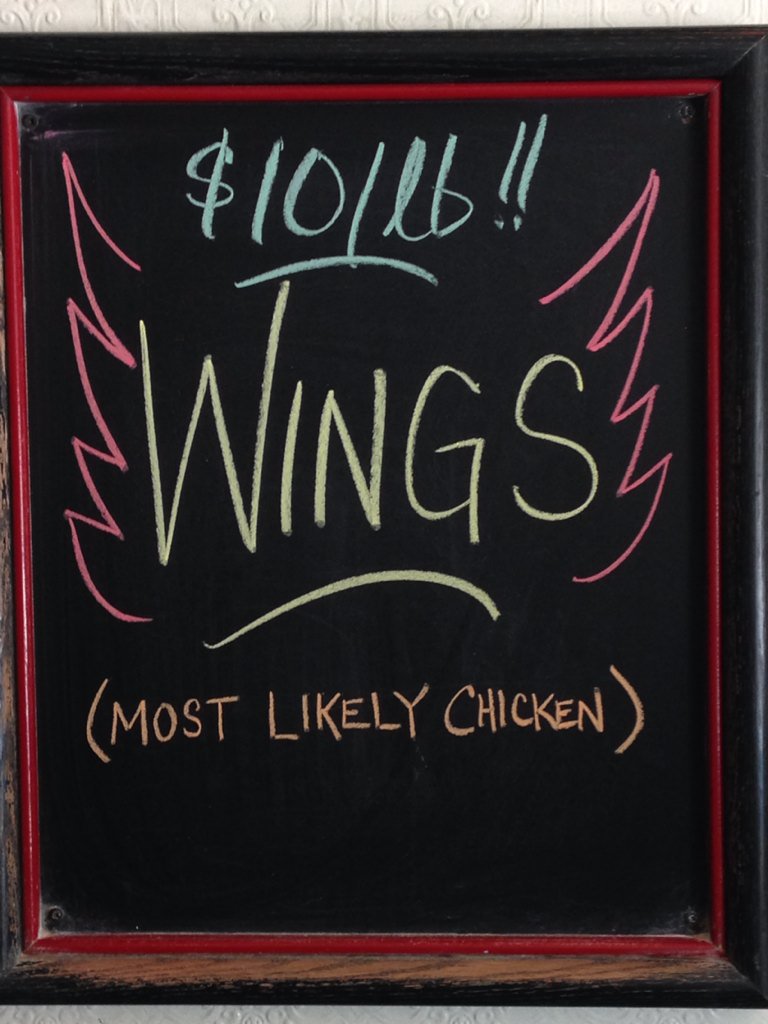 $10/lb!!
WINGS
(MOST LIKELY CHICKEN)